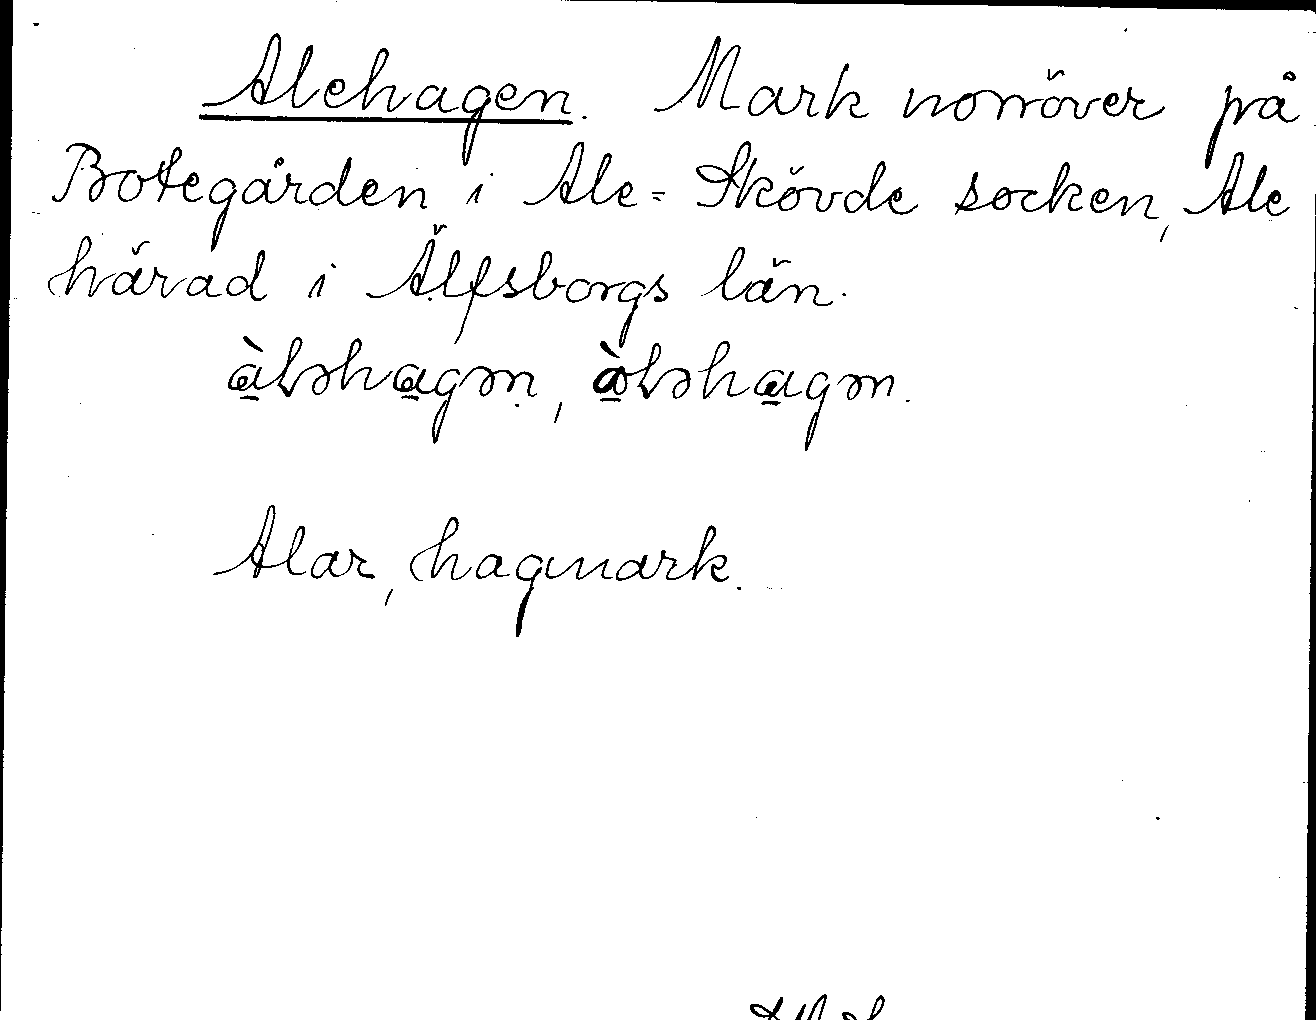 Alehagen. Mark norröver på
Botegården i Ale-Skövde socken, Ale
härad i Älfsborgs län.
àləhagən, òləhagən.
Alar, hagmark.